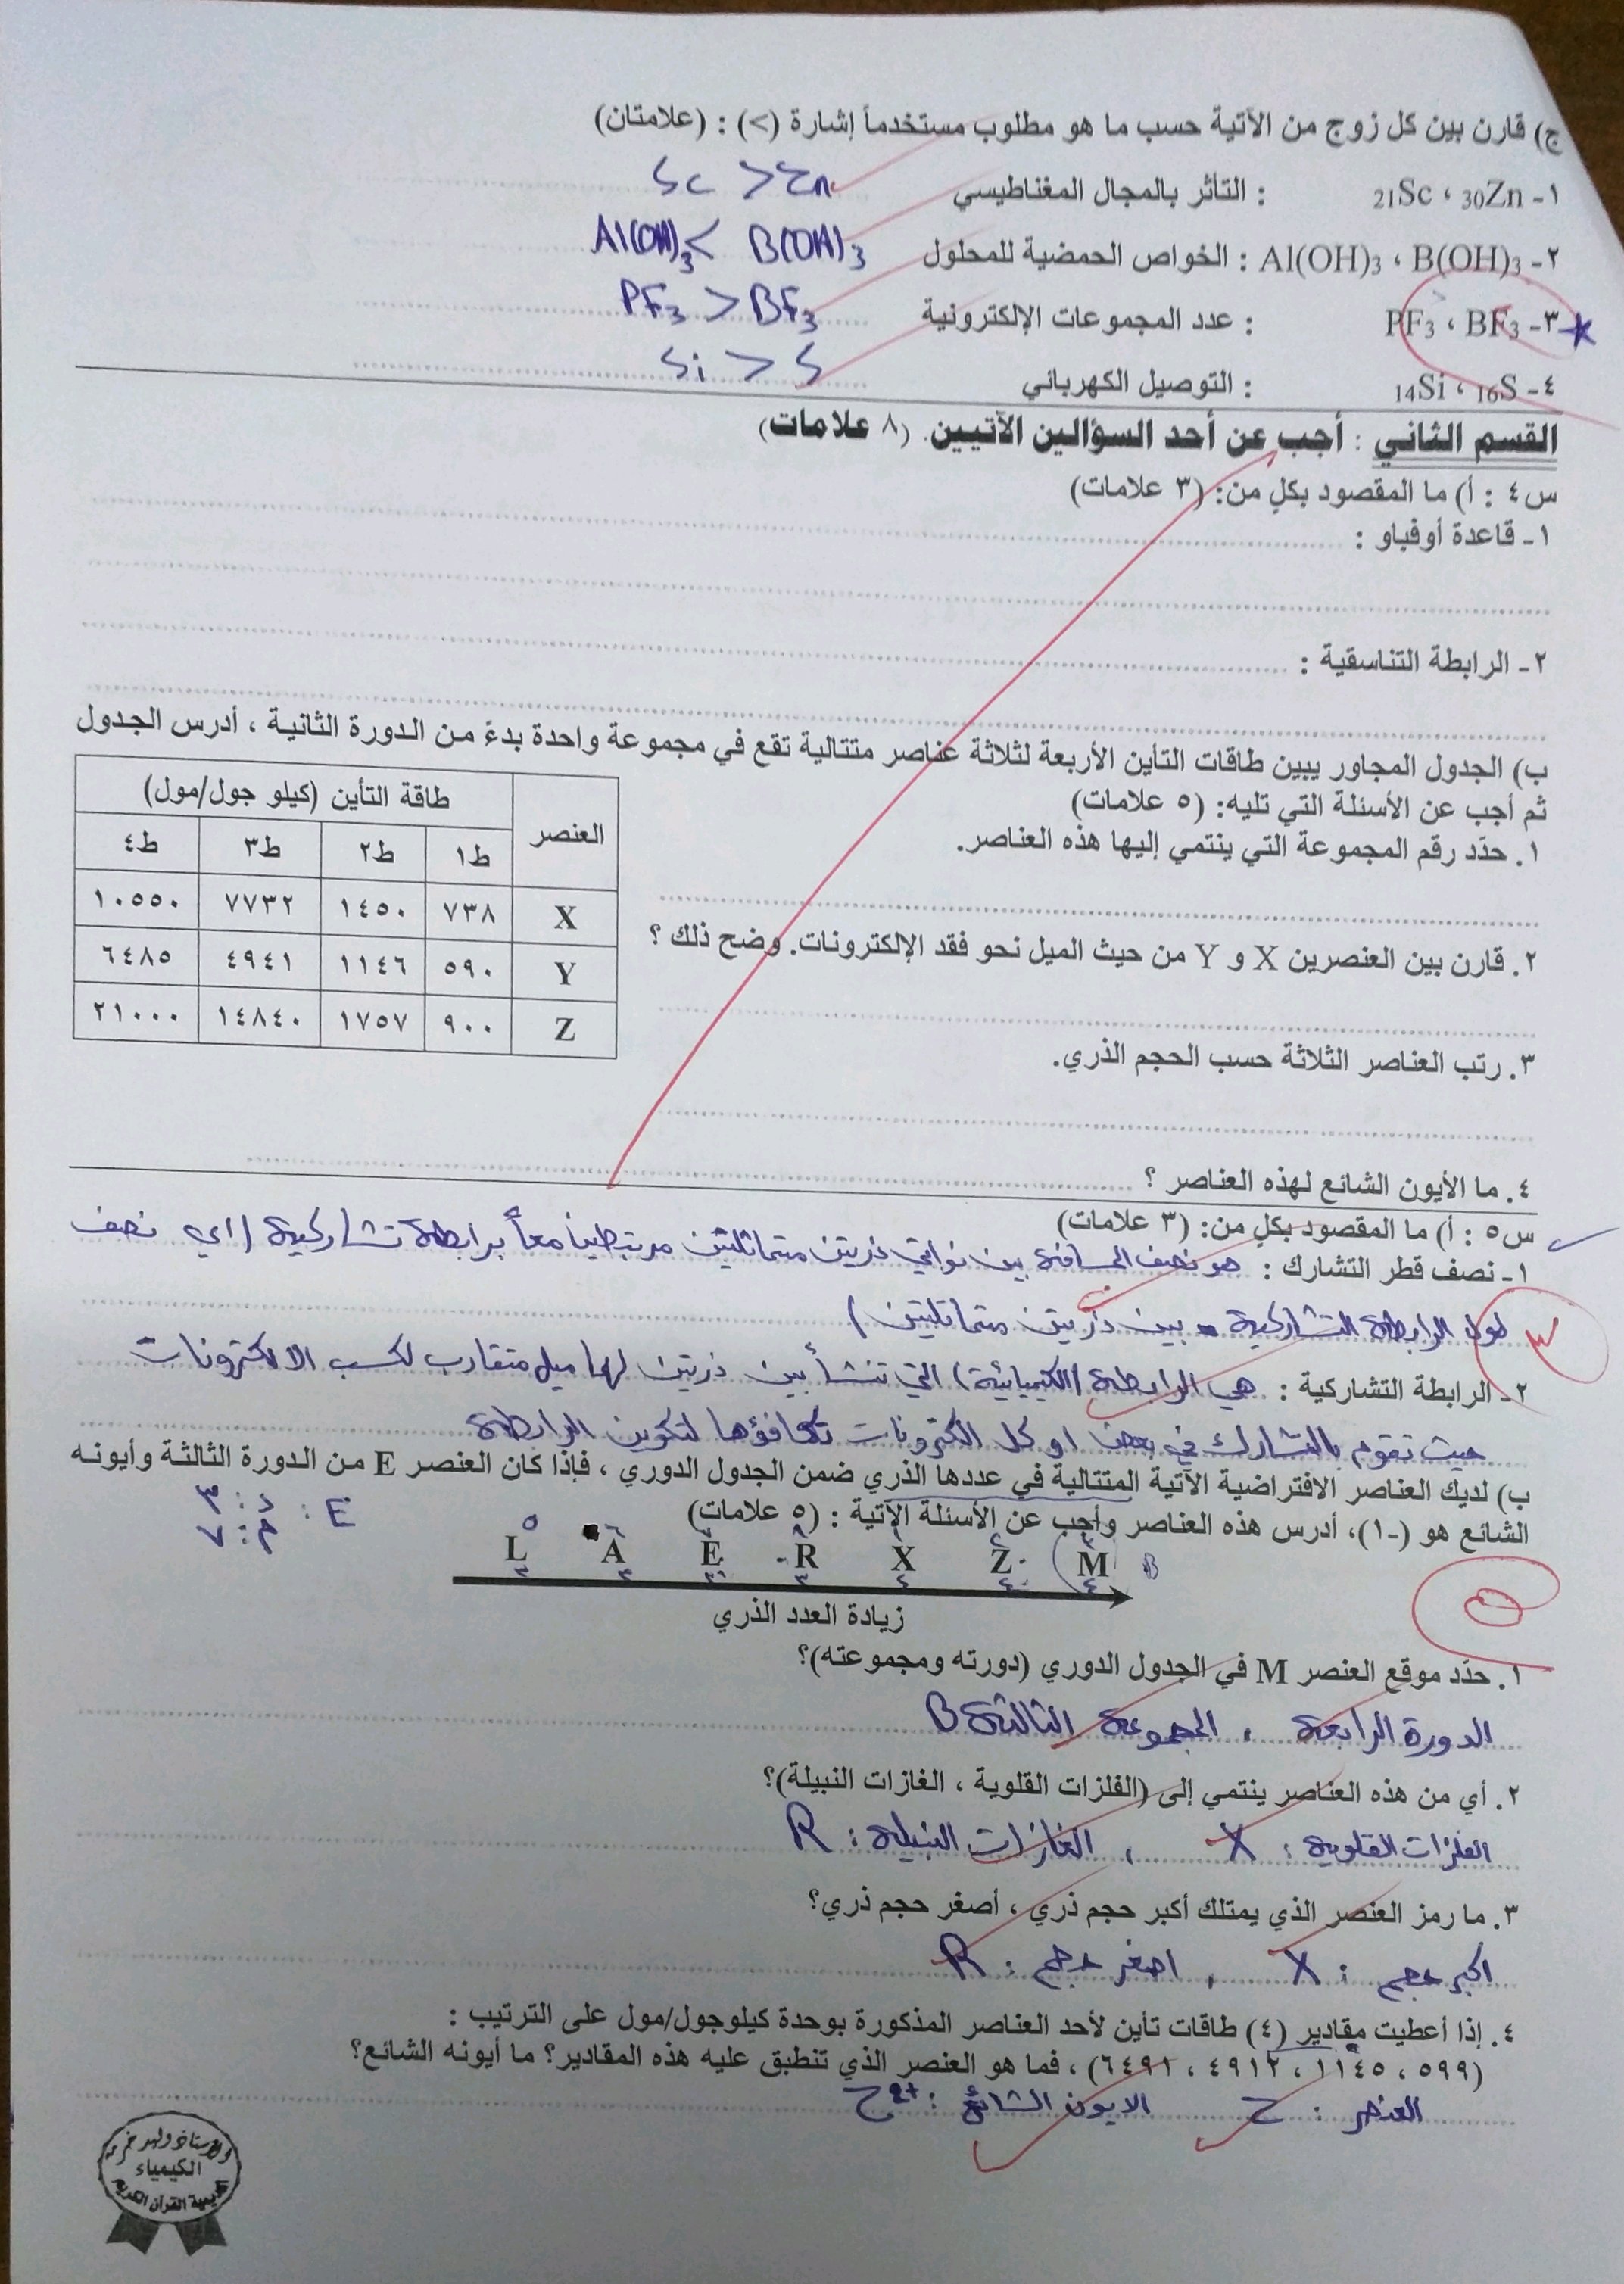 ج) قارن بين كل زوج من الآتية حسب ما هو مطلوب مستخدماً إشارة (>) : (علامتان)
١- 21Sc ، 30Zn : التأثر بالمجال المغناطيسي Sc > Zn
٢- Al(OH)3 ، B(OH)3 : الخواص الحمضية للمحلول Al(OH)3 < B(OH)3
٣- PF3 ، BF3 : عدد المجموعات الإلكترونية PF3 > BF3
٤- 14Si ، 16S : التوصيل الكهربائي Si > S
القسم الثاني : أجب عن أحد السؤالين الآتيين. (٨ علامات)
س٤ : أ) ما المقصود بكلٍ من: (٣ علامات)
١- قاعدة أوفباو :
٢- الرابطة التناسقية :
ب) الجدول المجاور يبين طاقات التأين الأربعة لثلاثة عناصر متتالية تقع في مجموعة واحدة بدءً من الدورة الثانية ، أدرس الجدول
ثم أجب عن الأسئلة التي تليه: (٥ علامات)
العنصر طاقة التأين (كيلو جول/مول)
ط١ ط٢ ط٣ ط٤
X ٧٣٨ ١٤٥٠ ٧٧٣٢ ١٠٥٥٠
Y ٥٩٠ ١١٤٦ ٤٩٤١ ٦٤٨٥
Z ٩٠٠ ١٧٥٧ ١٤٨٤٠ ٢١٠٠٠
١. حدّد رقم المجموعة التي ينتمي إليها هذه العناصر.
٢. قارن بين العنصرين X و Y من حيث الميل نحو فقد الإلكترونات. وضح ذلك ؟
٣. رتب العناصر الثلاثة حسب الحجم الذري.
٤. ما الأيون الشائع لهذه العناصر ؟
س٥ : أ) ما المقصود بكلٍ من: (٣ علامات)
١- نصف قطر التشارك : هو نصف المسافة بين نواتي ذريتن متماثلتين مرتبطين معاً برابطة تشاركية (اي نصف
طول الرابطة التشاركية بين ذرتين متماثلتين)
٣
٢- الرابطة التشاركية : هي الرابطة (الكيميائية) التي تنشأ بين ذرتين لهما ميل متقارب لكسب الالكترونات
حيث تقوم بالتشارك في بعض او كل الكترونات تكافؤها لتكوين الرابطة
ب) لديك العناصر الافتراضية الآتية المتتالية في عددها الذري ضمن الجدول الدوري ، فإذا كان العنصر E من الدورة الثالثة وأيونه
الشائع هو (-١)، أدرس هذه العناصر وأجب عن الأسئلة الآتية : (٥ علامات)
E : د : ٣
م : ٧
٥ ٦ ٧ ٨ ١ ٢ ٣
L A E R X Z M B
٣ ٣ ٣ ٣ ٤ ٤ ٤
زيادة العدد الذري
٥
١. حدّد موقع العنصر M في الجدول الدوري (دورته ومجموعته)؟
الدورة الرابعة ، المجموعة الثالثة B
٢. أي من هذه العناصر ينتمي إلى (الفلزات القلوية ، الغازات النبيلة)؟
الفلزات القلوية : X ، الغازات النبيلة : R
٣. ما رمز العنصر الذي يمتلك أكبر حجم ذري ، أصغر حجم ذري؟
أكبر حجم : X ، اصغر حجم : R
٤. إذا أعطيت مقادير (٤) طاقات تأين لأحد العناصر المذكورة بوحدة كيلوجول/مول على الترتيب :
(٥٩٩ ، ١١٤٥ ، ٤٩١٢ ، ٦٤٩١) ، فما هو العنصر الذي تنطبق عليه هذه المقادير؟ ما أيونه الشائع؟
العنصر : Z الايون الشائع : Z2+
الكيمياء